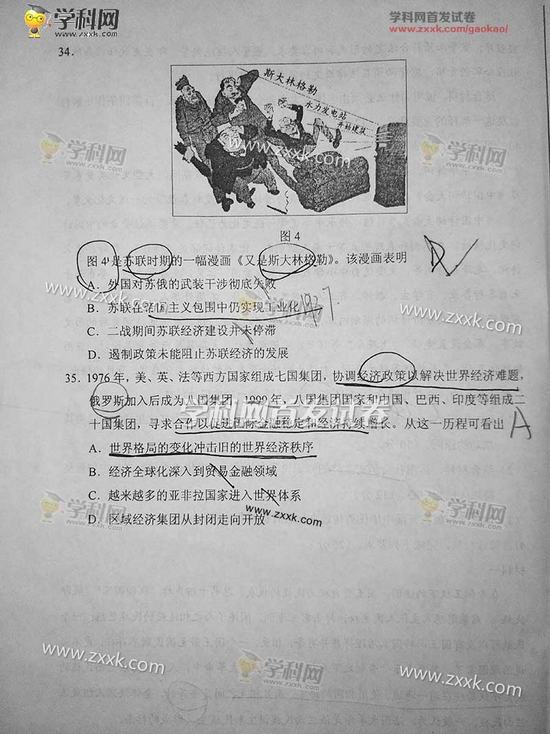 学科网
www.zxxk.com
学科网首发试卷
www.zxxk.com/gaokao/
34.
斯大林格勒
水力发电站
图4
图4是苏联时期的一幅漫画《又是斯大林格勒》。该漫画表明
A．外国对苏俄的武装干涉彻底失败
B．苏联在帝国主义包围中仍实现工业化
C．二战期间苏联经济建设并未停滞
D．遏制政策未能阻止苏联经济的发展
35. 1976年，美、英、法等西方国家组成七国集团，协调经济政策以解决世界经济难题，
俄罗斯加入后成为八国集团，1999年，八国集团国家和中国、巴西、印度等组成二
十国集团，寻求合作以促进国际金融稳定和经济持续增长。从这一历程可看出
A
A．世界格局的变化冲击旧的世界经济秩序
B．经济全球化深入到贸易金融领域
C．越来越多的亚非拉国家进入世界体系
D．区域经济集团从封闭走向开放
学科网首发试卷
www.zxxk.com